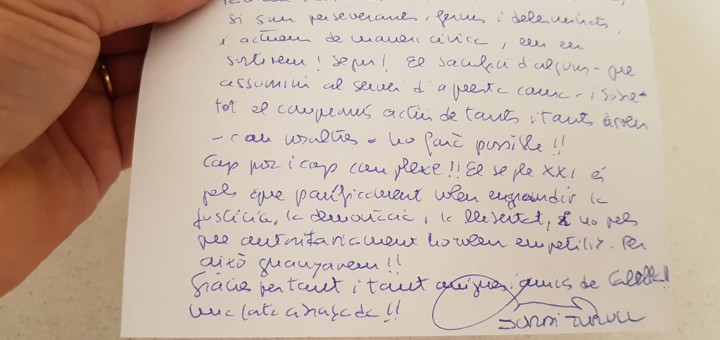 si som perseverants, ferms i determinats,
i actuem de manera cívica, ens en
sortirem! Segur! El sacrifici d'alguns - que
assumim al servei d'aquesta causa - i sobre-
tot el compromís actiu de tants i tants
- com vosaltres - ho farà possible!!
Cap por i cap complexe!! El segle XXI és
pels que pacíficament volen engrandir la
justícia, la democràcia, la llibertat, i no pels
que autoritàriament ho volen empetitir. Per
això guanyarem!!
Gràcies per tant i tant amigues i amics de Calella!!
Una forta abraçada!!
JORDI TURULL